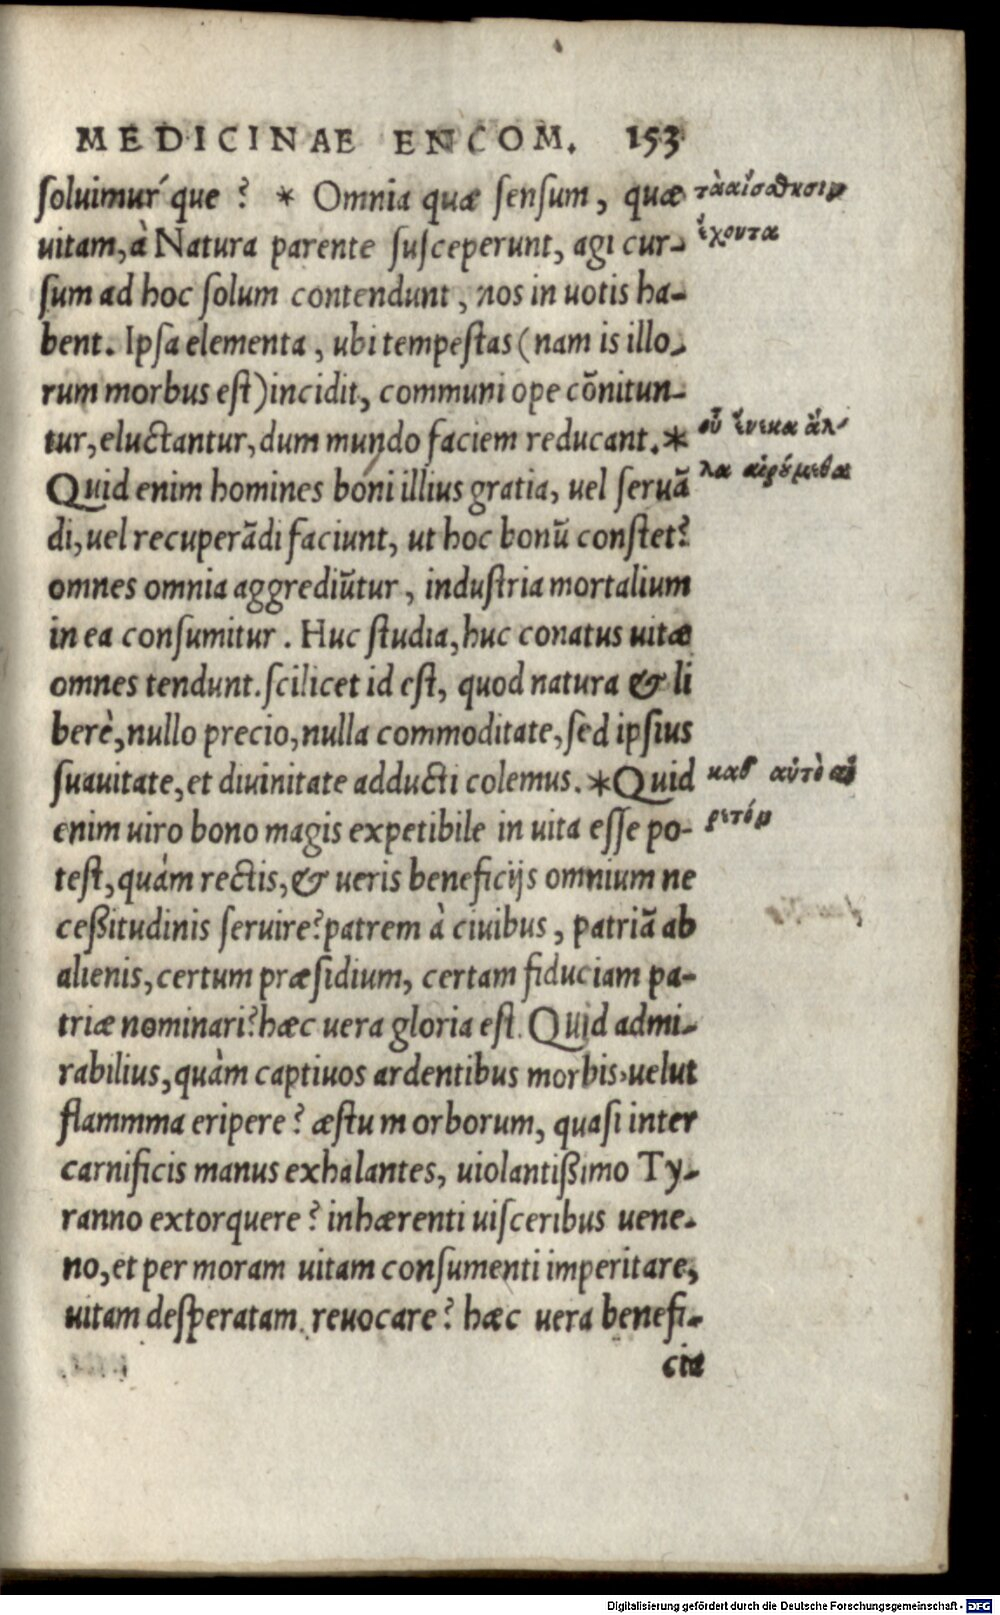 MEDICINAE ENCOM. 153
soluimur´que? * Omnia quæ sensum, quæ
uitam, à Natura parente susceperunt, agi cur-
sum ad hoc solum contendunt, nos in uotis ha-
bent. Ipsa elementa, ubi tempestas (nam is illo-
rum morbus est) incidit, communi ope cõnitun-
tur, eluctantur, dum mundo faciem reducant. *
Quid enim homines boni illius gratia, uel seruã
di, uel recuperãdi faciunt, ut hoc bonũ constet?
omnes omnia aggrediũtur, industria mortalium
in ea consumitur. Huc studia, huc conatus uitæ
omnes tendunt. scilicet id est, quod natura & li
berè, nullo precio, nulla commoditate, sed ipsius
suauitate, et diuinitate adducti colemus. *Quid
enim uiro bono magis expetibile in uita esse po-
test, quàm rectis, & ueris beneficijs omnium ne
ceßitudinis seruire? patrem à ciuibus, patriã ab
alienis, certum præsidium, certam fiduciam pa-
triæ nominari? hæc uera gloria est. Quid admi-
rabilius, quàm captiuos ardentibus morbis, uelut
flammma eripere? æstu m orborum, quasi inter
carnificis manus exhalantes, uiolantißimo Ty-
ranno extorquere? inhærenti uisceribus uene-
no, et per moram uitam consumenti imperitare,
uitam desperatam reuocare? hæc uera benefi-
cia
τὰ αἴσθησιν
ἔχοντα
οὗ ἕνεκα ἄλ-
λα αἱρούμεθα
καθ' αὑτὸ αἱ
ρετόν
Digitalisierung gefördert durch die Deutsche Forschungsgemeinschaft - DFG